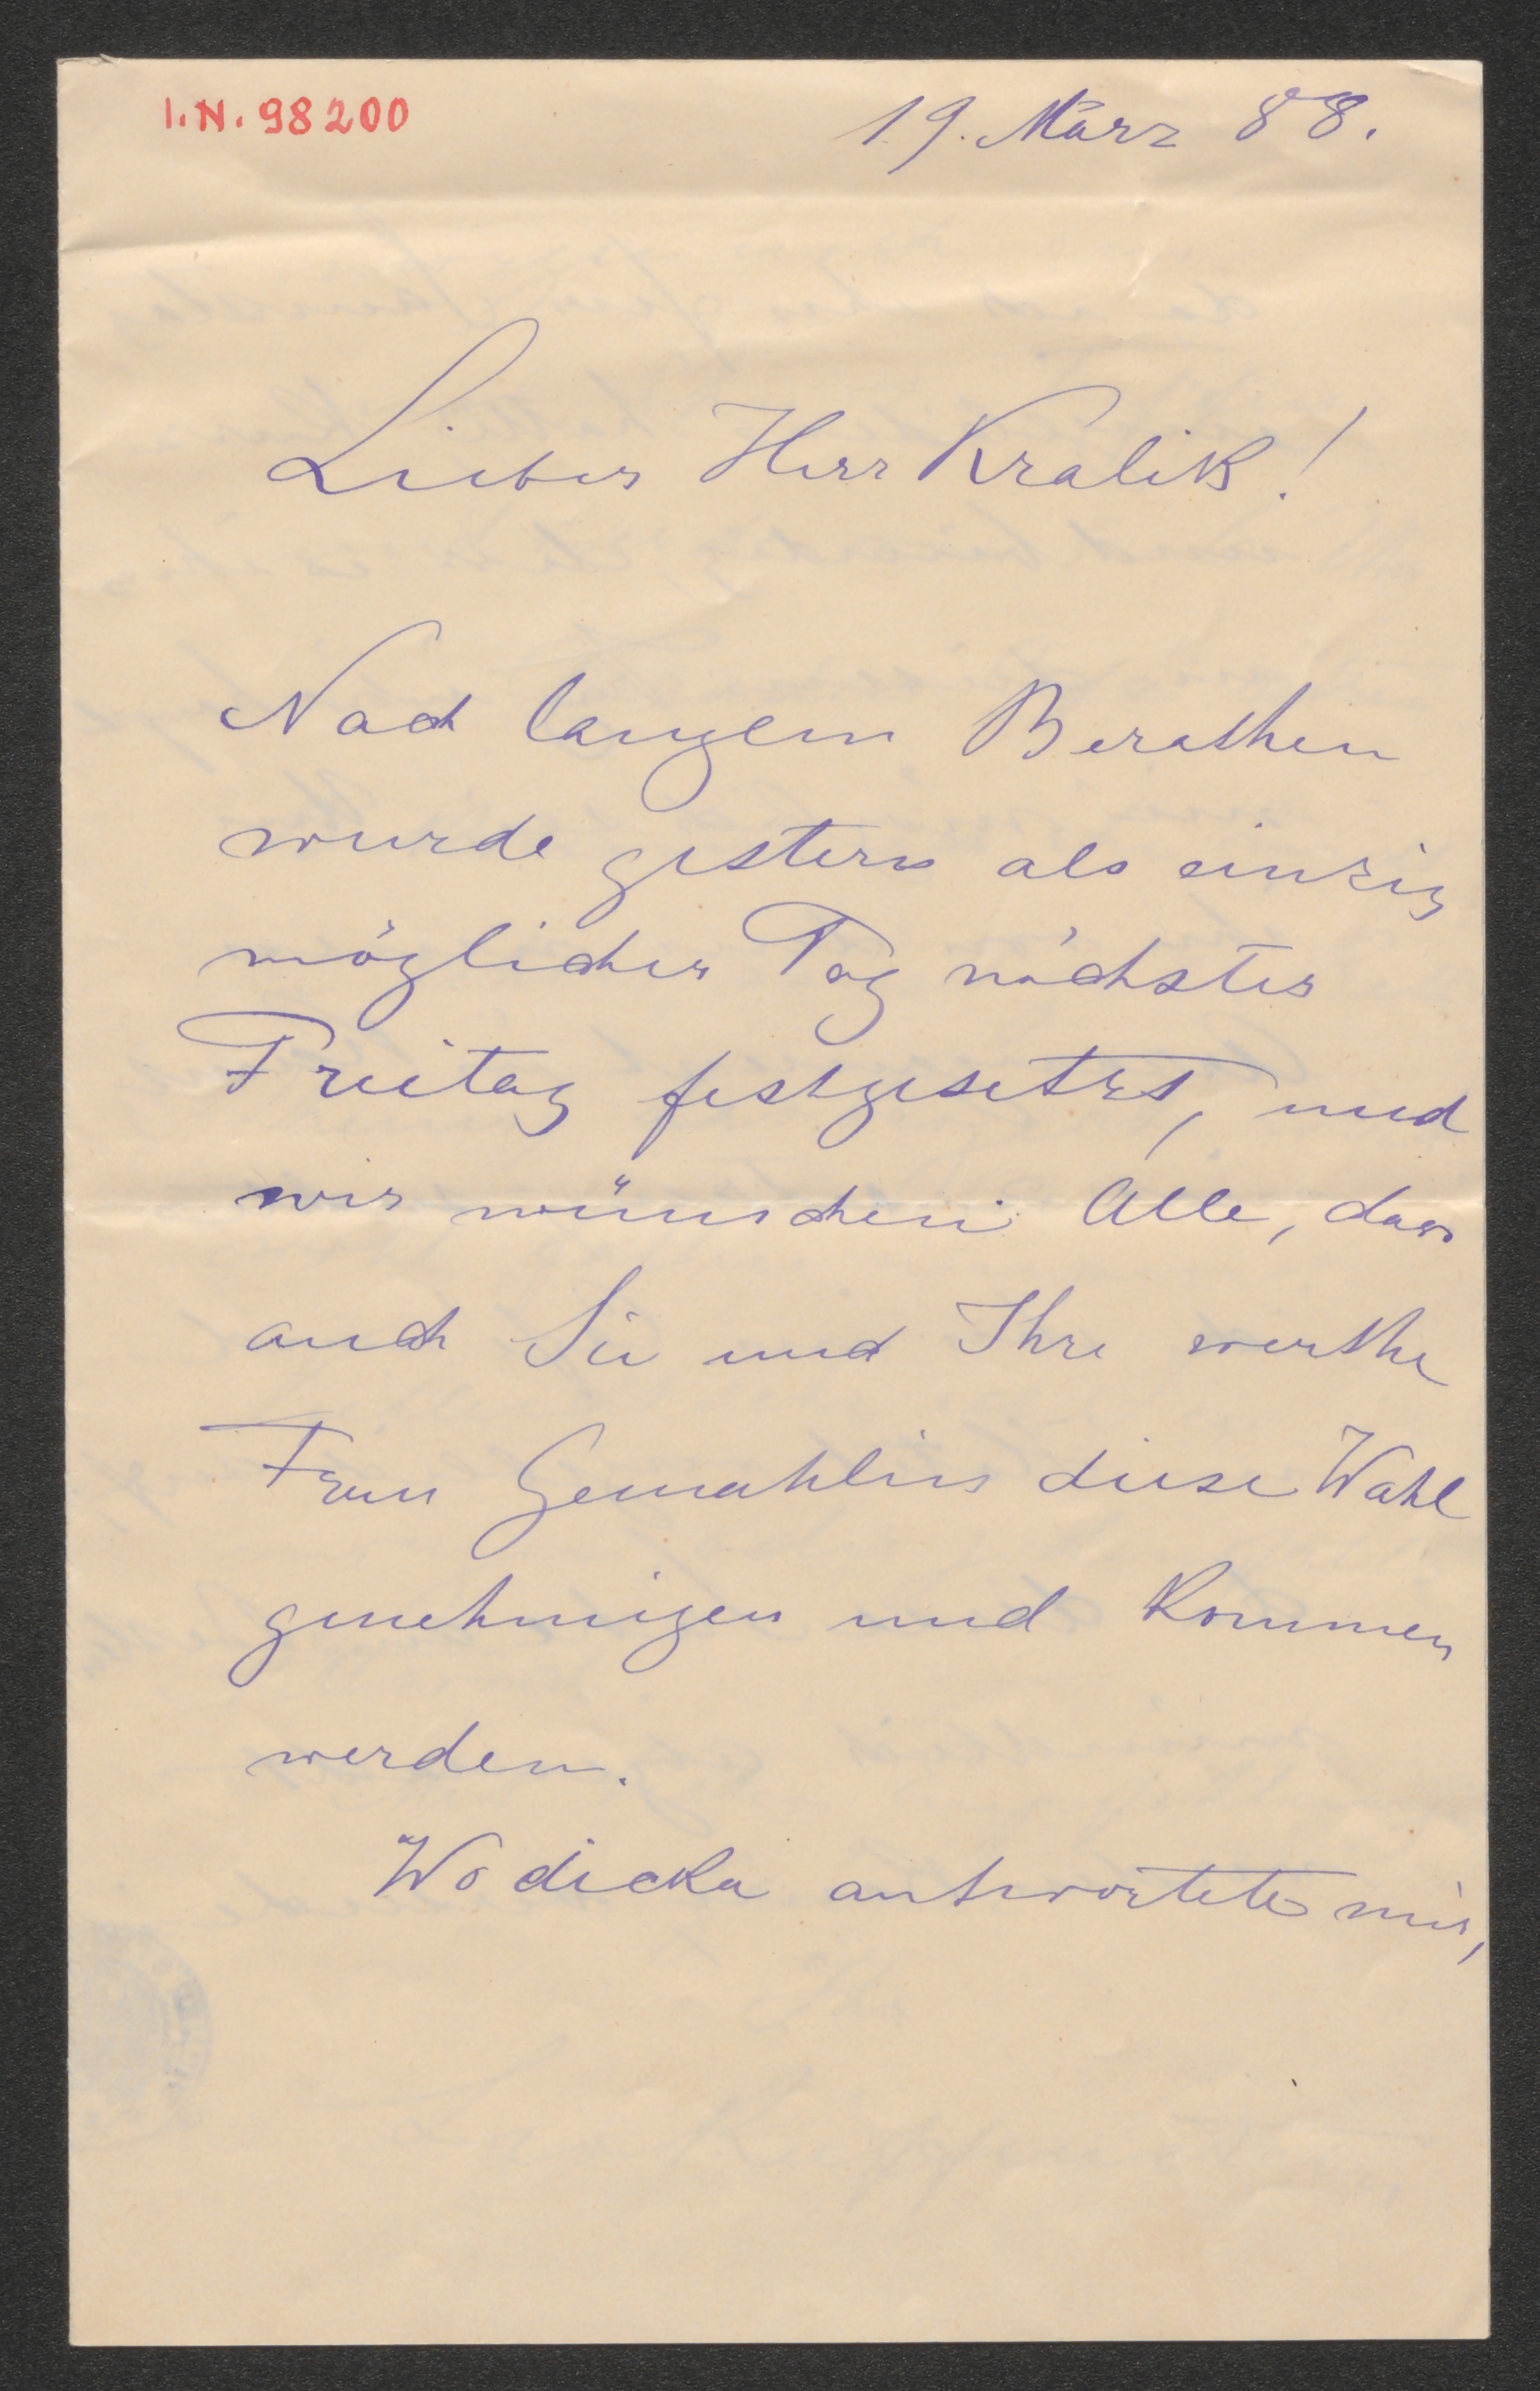 I.N. 98200
19. März 88.
Lieber Herr Kralik!
Nach langem Berathen
wurde gestern als einzig
möglicher Tag nächster
Freitag festgesetzt, und
wir wünschen Alle, dass
auch Sie und Ihre werthe
Frau Gemahlin diese Wahl
genehmigen und kommen
werden.
Wodicka antwortete mir,